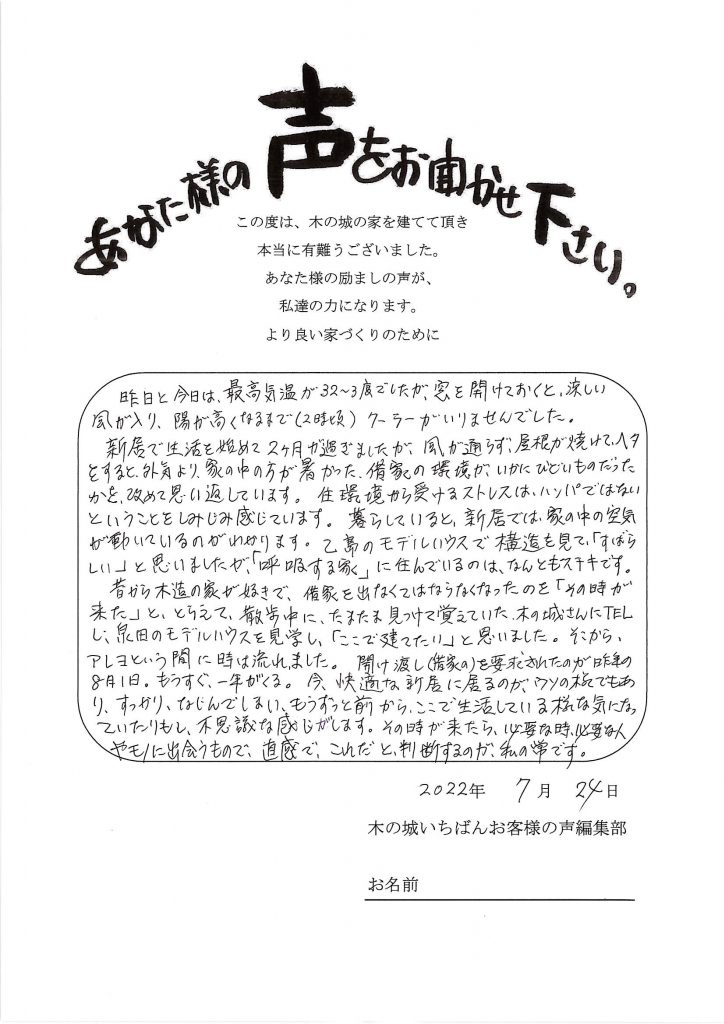 あなた様の声をお聞かせ下さい。
この度は、木の城の家を建てて頂き
本当に有難うございました。
あなた様の励ましの声が、
私達の力になります。
より良い家づくりのために
昨日と今日は、最高気温が32〜3度でしたが、窓を開けておくと、涼しい
風が入り、陽が高くなるまで(2時頃) クーラーがいりませんでした。
新居で生活を始めて2ヶ月が過ぎましたが、風が通らず、屋根が焼けて、ヘタ
をすると、外気より、家の中の方が暑かった、借家の環境が、いかにひどいものだった
かを、改めて思い返しています。 住環境から受けるストレスは、ハンパではない
ということをしみじみ感じています。 暮らしていると、新居では、家の中の空気
が動いているのがわかります。 乙島のモデルハウスで構造を見て、「すばら
しい」と思いましたが、「呼吸する家」に住んでいるのは、なんともステキです。
昔から木造の家が好きで、借家を出なくてはならなくなったのを「その時が
来た」と、とらえて、散歩中に、たまたま見つけて覚えていた、木の城さんにTEL
し、泉田のモデルハウスを見学し、「ここで建てたい」と思いました。そこから、
アレヨという間に時は流れました。 開け渡し(借家の)を要求されたのが昨年の
8月1日。もうすぐ、一年がくる。 今、快適な新居に居るのが、ウソの様でもあ
り、すっかり、なじんでしまい、もうずっと前から、ここで生活している様な気になっ
ていたりもし、不思議な感じがします。その時が来たら、必要な時、必要な人
やモノに出会うもので、直感で、これだと、判断するのが、私の常です。
2022年 7月 24日
木の城いちばんお客様の声編集部
お名前